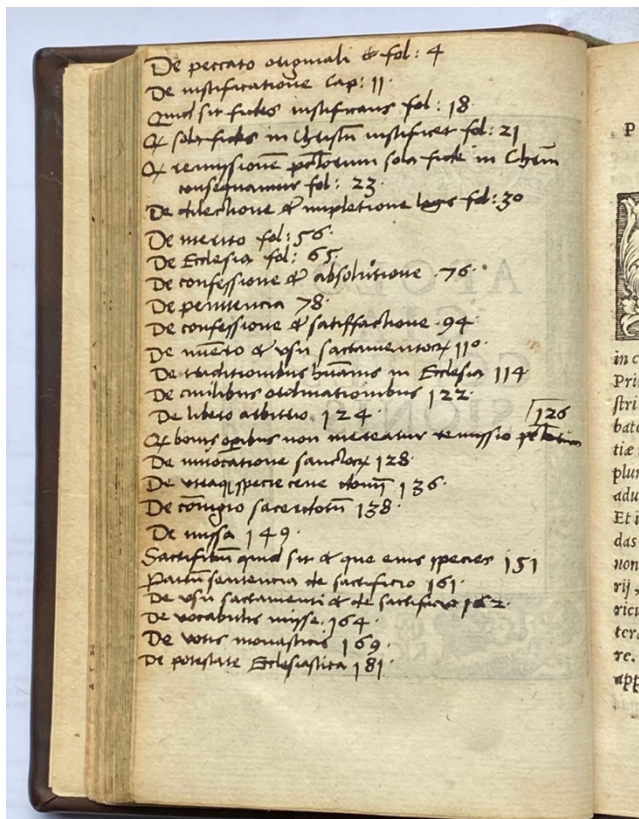 De peccato originali & fol: 4
De iustificatione Cap: 11.
Quid sit fides iustificans fol: 18.
Qꝫ sola fides in Christū iustificet fol: 21
Qꝫ remissionē pctōrum sola fide in Chrūm
consequamur fol: 23.
De dilectione & impletione legis fol: 30
De merito fol: 56.
De Ecclesia fol: 65.
De confessione & absolutione . 76.
De penitencia 78.
De confessione & satisfactione . 94.
De nūero & vsu sacramentoꝝ 110.
De traditionibus hūanis in Ecclesia 114
De ciuilibus ordinationibus 122.
De libero arbitrio . 124.
126
Qꝫ bonis opībus non mereatur remissio pctōrum
De inuocatione sanctoꝝ 128.
De vtraqꝫ specie cene domī 136.
De cōiugio sacerdotū 138.
De missa 149.
Sacrificiū quid sit & que eius species 151
Patrū sentencia de sacrificio 161.
De vsu sacramenti & de sacrificio 162.
De vocabulis misse . 164.
De votis monasticis 169.
De potestate Ecclesiastica 181.
P
in c
Pri
stri
bat
tiæ
plur
adu
Et i
das
non
rij,
ricu
tera
re.
app